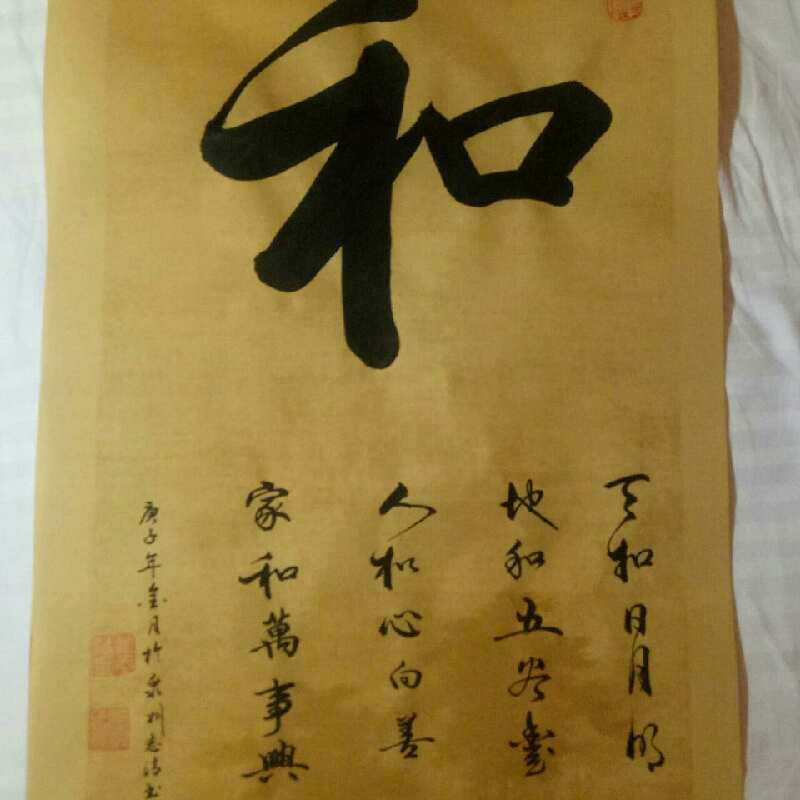 和
天和日月明
地和五谷豐
人和心向善
家和萬事興
庚子年金月於泉州志詩書